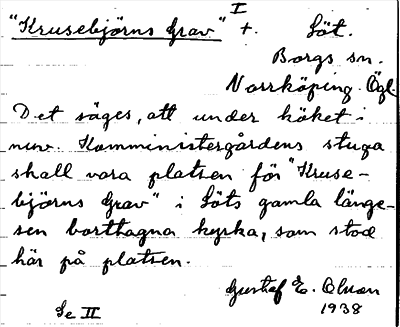 I
"Krusebjörns Grav" +. Löt.
Borgs sn.
Norrköping. Ögl.
Det säges, att under köket i
nuv. Komministergårdens stuga
skall vara platsen för "Kruse-
björns Grav" i Löts gamla länge-
sen borttagna kyrka, som stod
här på platsen.
Gustaf E. Olson
1938
Se II